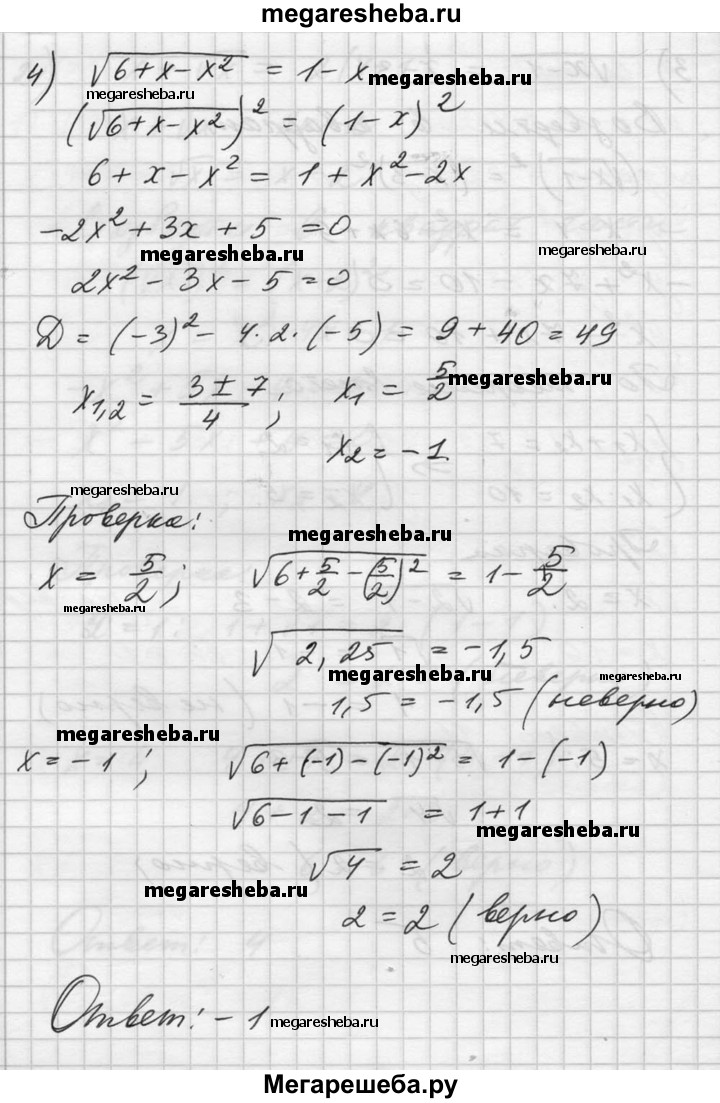 megaresheba.ru
4) √(6+x-x²) = 1-x megaresheba.ru
megaresheba.ru
(√(6+x-x²))² = (1-x)²
6+x-x² = 1+x²-2x
-2x²+3x+5 =0
megaresheba.ru megaresheba.ru
2x²-3x-5=0
Д = (-3)² - 4·2·(-5) = 9+40=49
x₁,₂ = (3±7)/4; x₁ = 5/2 megaresheba.ru
x₂ = -1.
megaresheba.ru
Проверка:
megaresheba.ru
x = 5/2; √(6+5/2-(5/2)²) = 1-5/2
megaresheba.ru
√(2,25) = -1,5
megaresheba.ru megaresheba.ru
1,5 = -1,5 (неверно)
megaresheba.ru
x=-1; √(6+(-1)-(-1)²) = 1-(-1)
√(6-1-1) = 1+1
megaresheba.ru
√4 = 2
megaresheba.ru
2=2 (верно)
megaresheba.ru
Ответ: -1 megaresheba.ru
Мегарешеба.ру